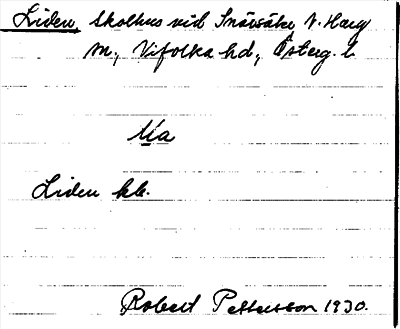 Liden, skolhus vid Snäv­såker V. Harg
sn., Vifolka hd., Österg. l.
Ua
Liden kk.
Robert Pettersson 1930.